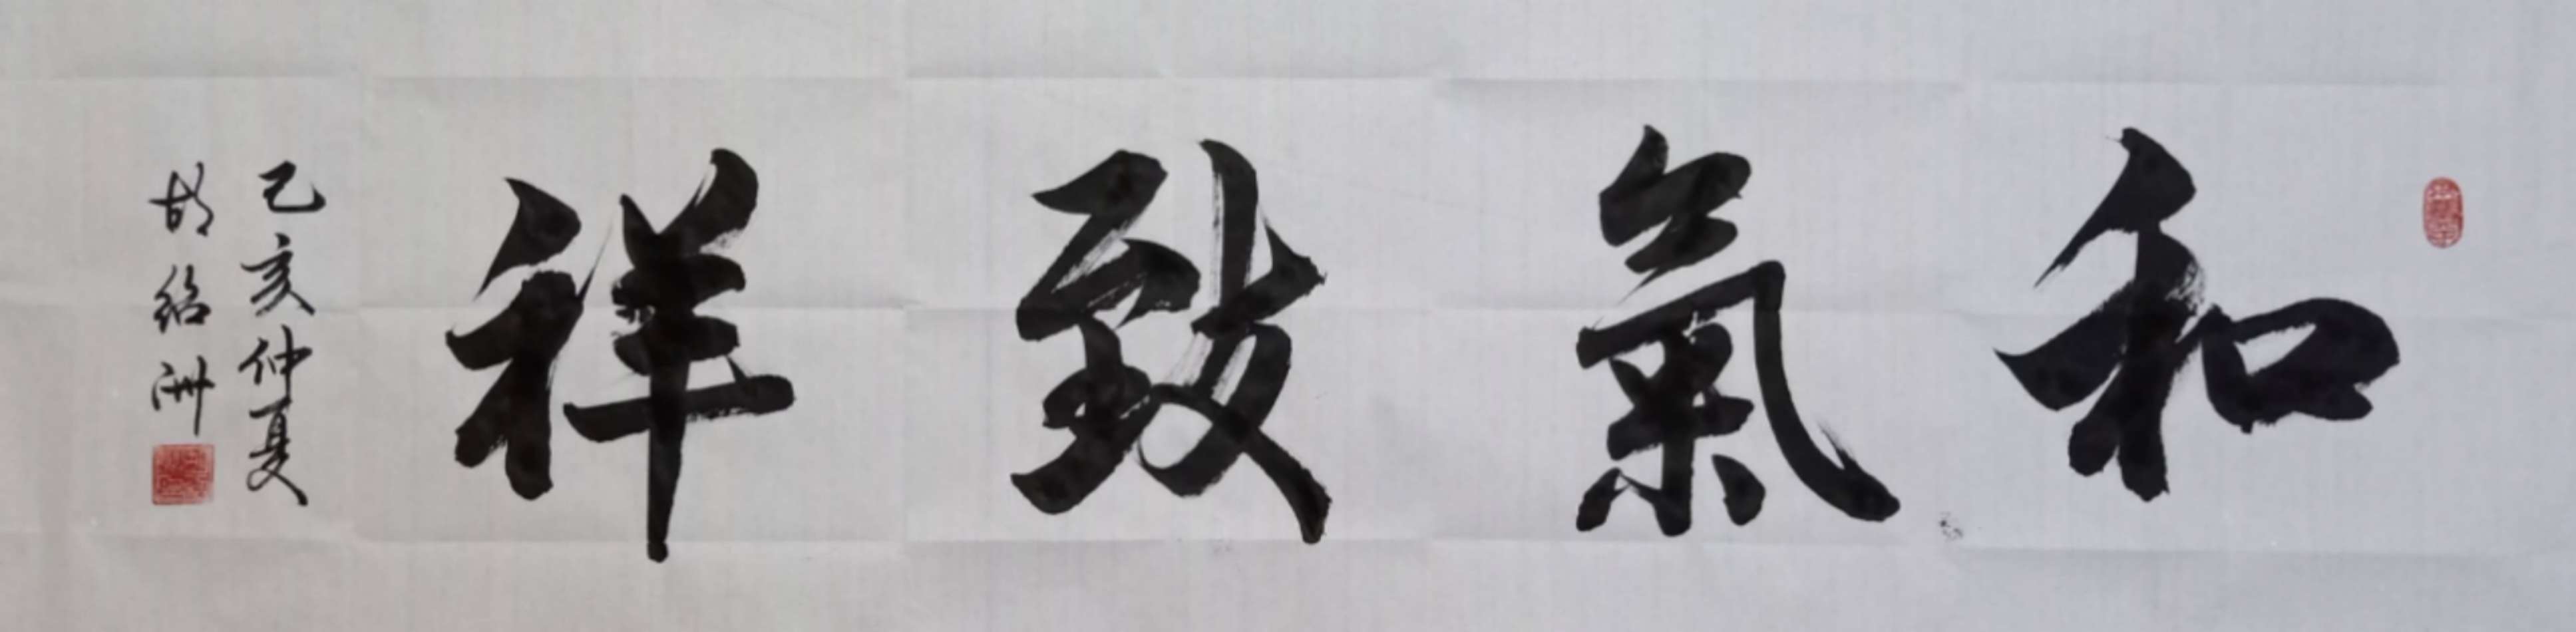 和氣致祥
己亥仲夏
胡紹洲